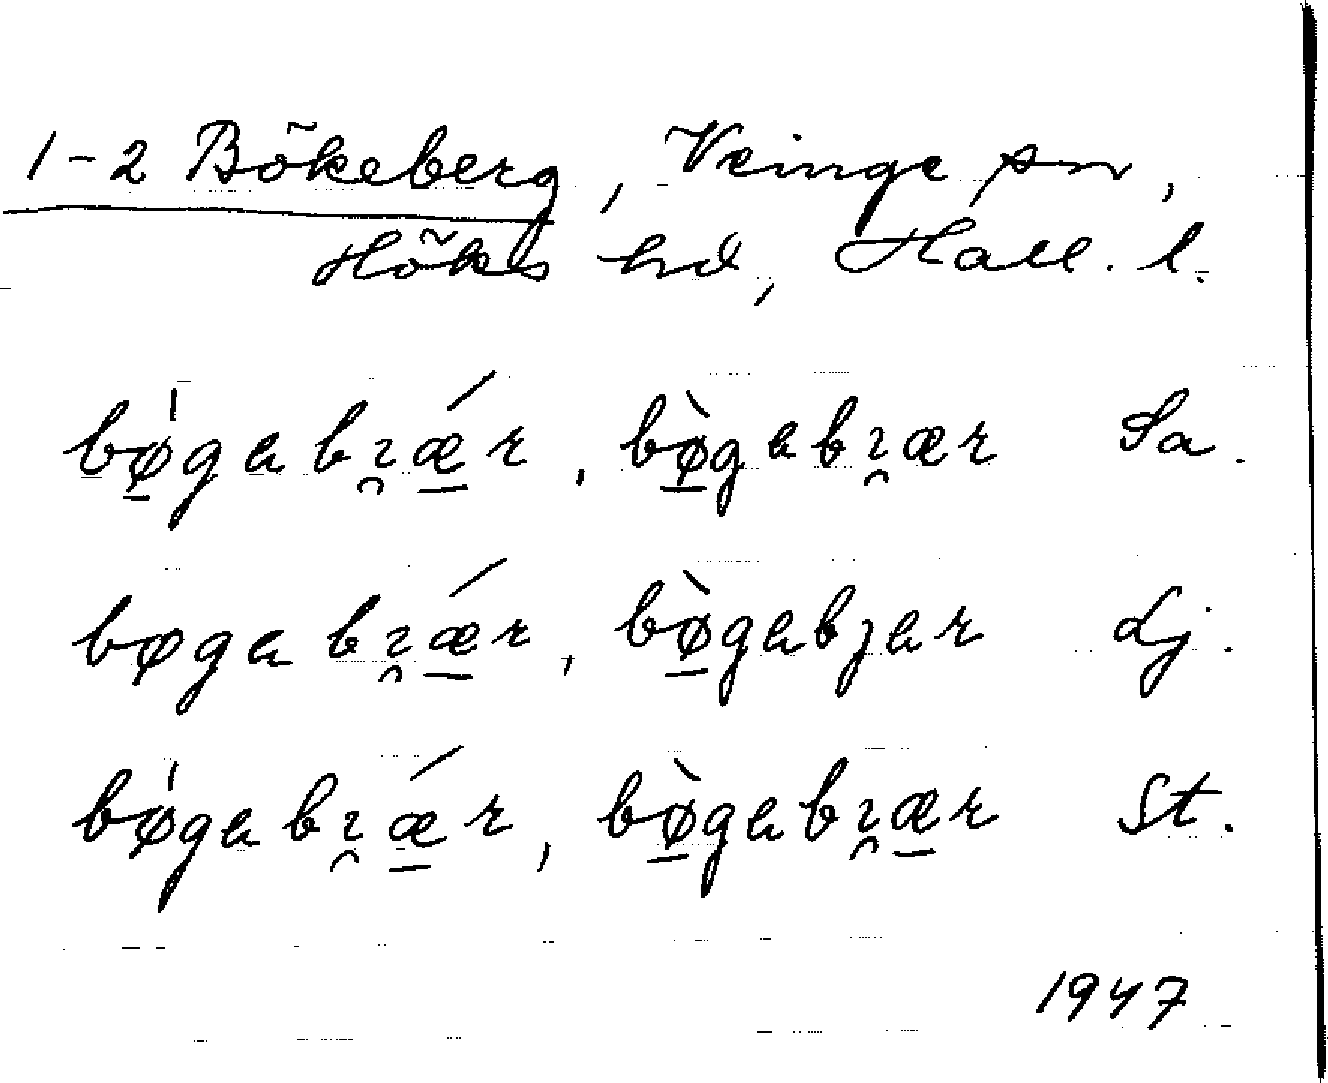 1-2 Bökeberg, Veinge sn,
Höks hd, Hall. l.
bǿ̱gabı̯ǽ̱r, bø̱̀gabı̯ær Sa.
bøgabı̯ǽ̱r, bø̱̀gabjar Lj.
bǿgabı̯ǽ̱r, bø̱̀gabı̯æ̱r St.
1947